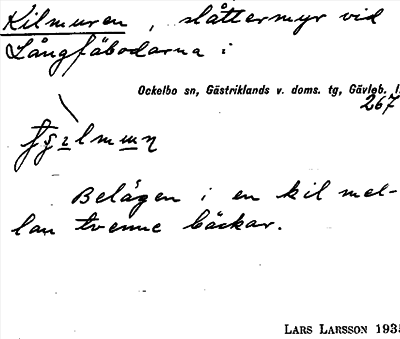 Kilmuren, slåttermyr vid
Långfäbodarna:
Ockelbo sn, Gästriklands v. doms. tg, Gävleb. l.
267
Belägen i en kil mel-
lan tvenne bäckar.
LARS LARSSON 1935